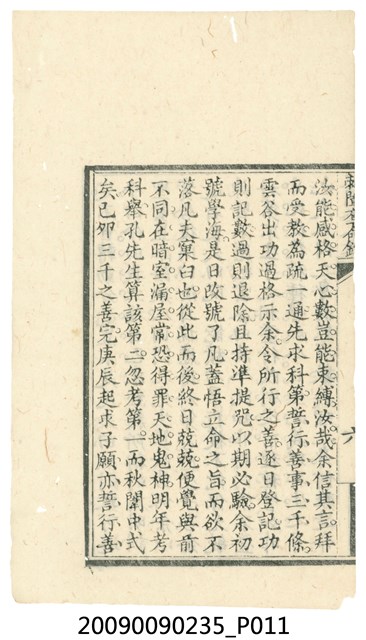 汝能感格天心數豈能束縛汝哉余信其言拜
而受教為疏一通先求科第誓行善事三千條
雲谷出功過格示余令所行之善逐日登記功
則記數過則退除且持準提咒以期必驗余初
號學海是日改號了凡蓋悟立命之旨而欲不
落凡夫窠臼也從此而後終日兢兢便覺與前
不同在暗室漏屋常恐得罪天地鬼神明年考
科舉孔先生算該第二忽考第一而秋闈中式
矣已卯三千之善完庚辰起求子願亦誓行善
六
20090090235_P011